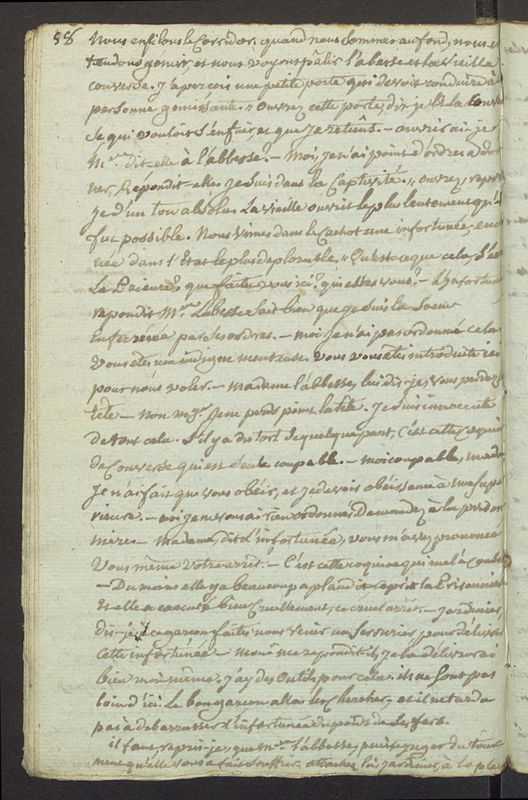 58 Nous enfilons le Corridor, quand nous sommes au fond, nous en
tendons gemir et nous voyons pâlir l'abesse et la vieille
converse. J'aperçois une petite porte qui devoit conduire à
personne gemissante. " ouvrez cette porte, dis-je à la
Se qui vouloit s'enfuir, et que je retins. - ouvrirai-je
M.me dit-elle à l'abbesse? - Moi, je n'ai point d'ordres a don
ner, Répondit-elle, je suis dans la Captivité. " ouvrez, repris
je d'un ton absolu. La vieille ouvrit le plus lentement qu'il
fut possible. Nous vimes dans le Cachot une infortunée, en
née dans l'Etat le plus deplorable. " Qu'est-ce que cela, dis-je à
La Prieure? que faites vous ici? qui estes vous? - L'infortunée
repondit M.me L'abesse sait bien que je suis la Soeur
enfermée par ses ordres. - moi je n'ai pas ordonné cela
vous êtes une indigne menteuse. vous vous êtes introduite ici
pour nous voler. - Madame l'abbesse, lui dis-je, vous perdez la
tête - Non M.gr je ne perds point la tête. Je suis innocente
de tout cela. S'il y a du tort de quelque part, c'est cette coquine
de Converse qui est seule coupable. - moi coupable, madame
Je n'ai fait que vous obéir, et je devois obéissance à une Supe
rieure. - moi je ne vous ai rien ordonné. Demandez à la
mères - Madame, dit l'infortunée, vous m'avez prononcé
Vous même votre arrêt. - C'est cette coquine qui me l'a
- Du moins elle y a beaucoup aplaudi reprit la Prisonniere
Et elle a executé bien Cruellement, ce cruel arrêt. - Jardinier,
dis-je à ce garçon faites nous venir un serrurier, pour délivrer
cette infortunée - moi même repondit-il, je la délivrerai
bien moi même, j'ay des Outils pour cela. ils ne sont pas
loin d'ici. Le bon garçon alla les Chercher, et il ne tarda
pas à debarrasser l'infortunée du poids de ses fers.
il faut, repris-je, que M.me l'abbesse, puisse juger du tour
ment qu'elle vous a fait souffrir. attachez la, jardinier, à la place